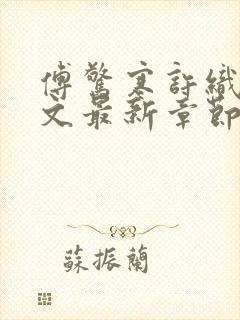 傅驚寒許織
文最新章節
蘇振蘭